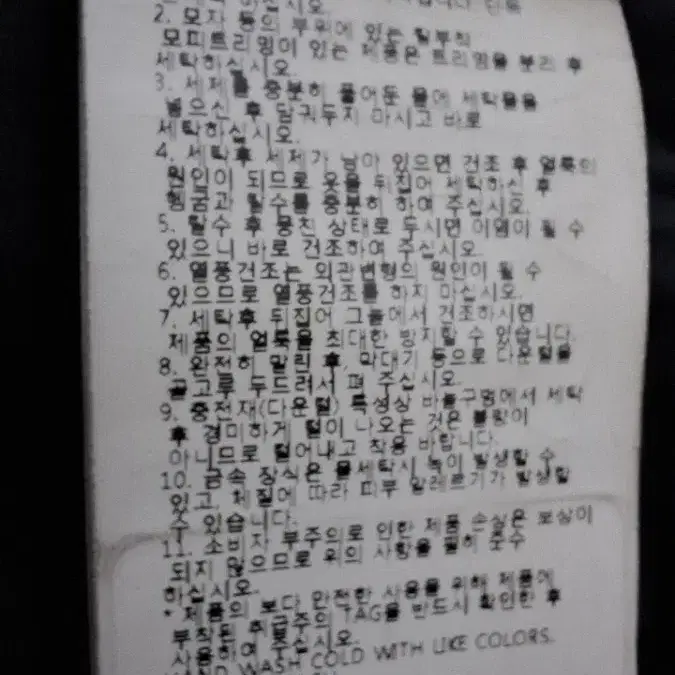 2. 모자 등의 부위에 있는 탈부착
모피트리밍이 있는 제품은 트리밍을 분리 후
세탁하십시오.
3. 세제를 충분히 풀어둔 물에 세탁물을
넣으신 후 담궈두지 마시고 바로
세탁하십시오.
4. 세탁후 세제가 남아 있으면 건조 후 얼룩의
원인이 되므로 옷을 뒤집어 세탁하신 후
헹굼과 탈수를 충분히 하여 주십시오.
5. 탈수 후 뭉친 상태로 두시면 이염이 될 수
있으니 바로 건조하여 주십시오.
6. 열풍건조는 외관변형의 원인이 될 수
있으므로 열풍건조를 하지 마십시오.
7. 세탁후 뒤집어 그늘에서 건조하시면
제품의 얼룩을 최대한 방지할 수 있습니다.
8. 완전히 말린 후, 막대기 등으로 다운털을
골고루 두드려서 펴 주십시오.
9. 충전재(다운털) 특성상 바늘구멍에서 세탁
후 경미하게 털이 나오는 것은 불량이
아니므로 털어내고 착용 바랍니다.
10. 금속 장식은 물세탁시 녹이 발생할 수
있고, 체질에 따라 피부 알레르기가 발생할
수 있습니다.
11. 소비자 부주의로 인한 제품 손상은 보상이
되지 않으므로 위의 사항을 필히 준수
하십시오.
* 제품의 보다 안전한 사용을 위해 제품에
부착된 취급주의 TAG을 반드시 확인한 후
사용하여 주십시오.
WASH COLD WITH LIKE COLORS.